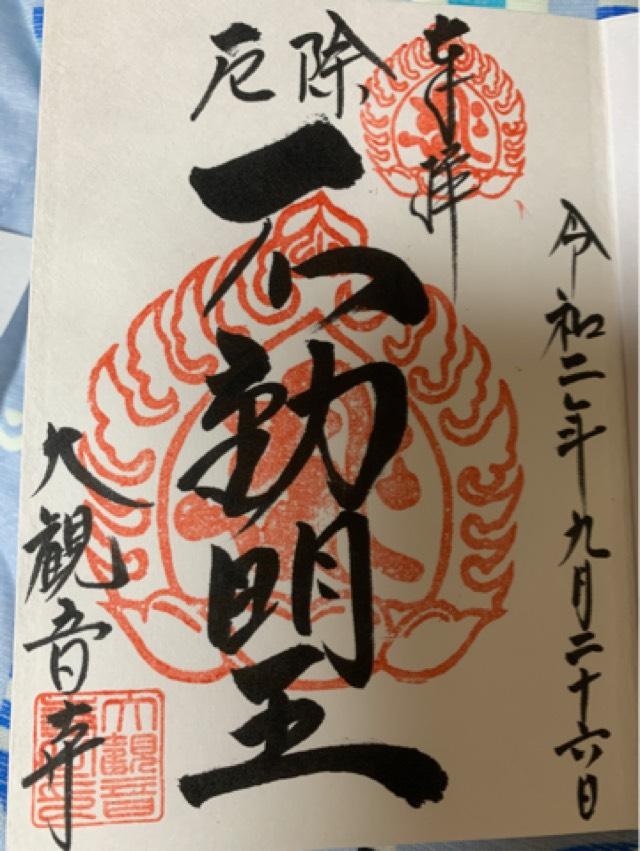 奉拝
令和二年九月二十六日
厄除
不動明王
大観音寺
大観音